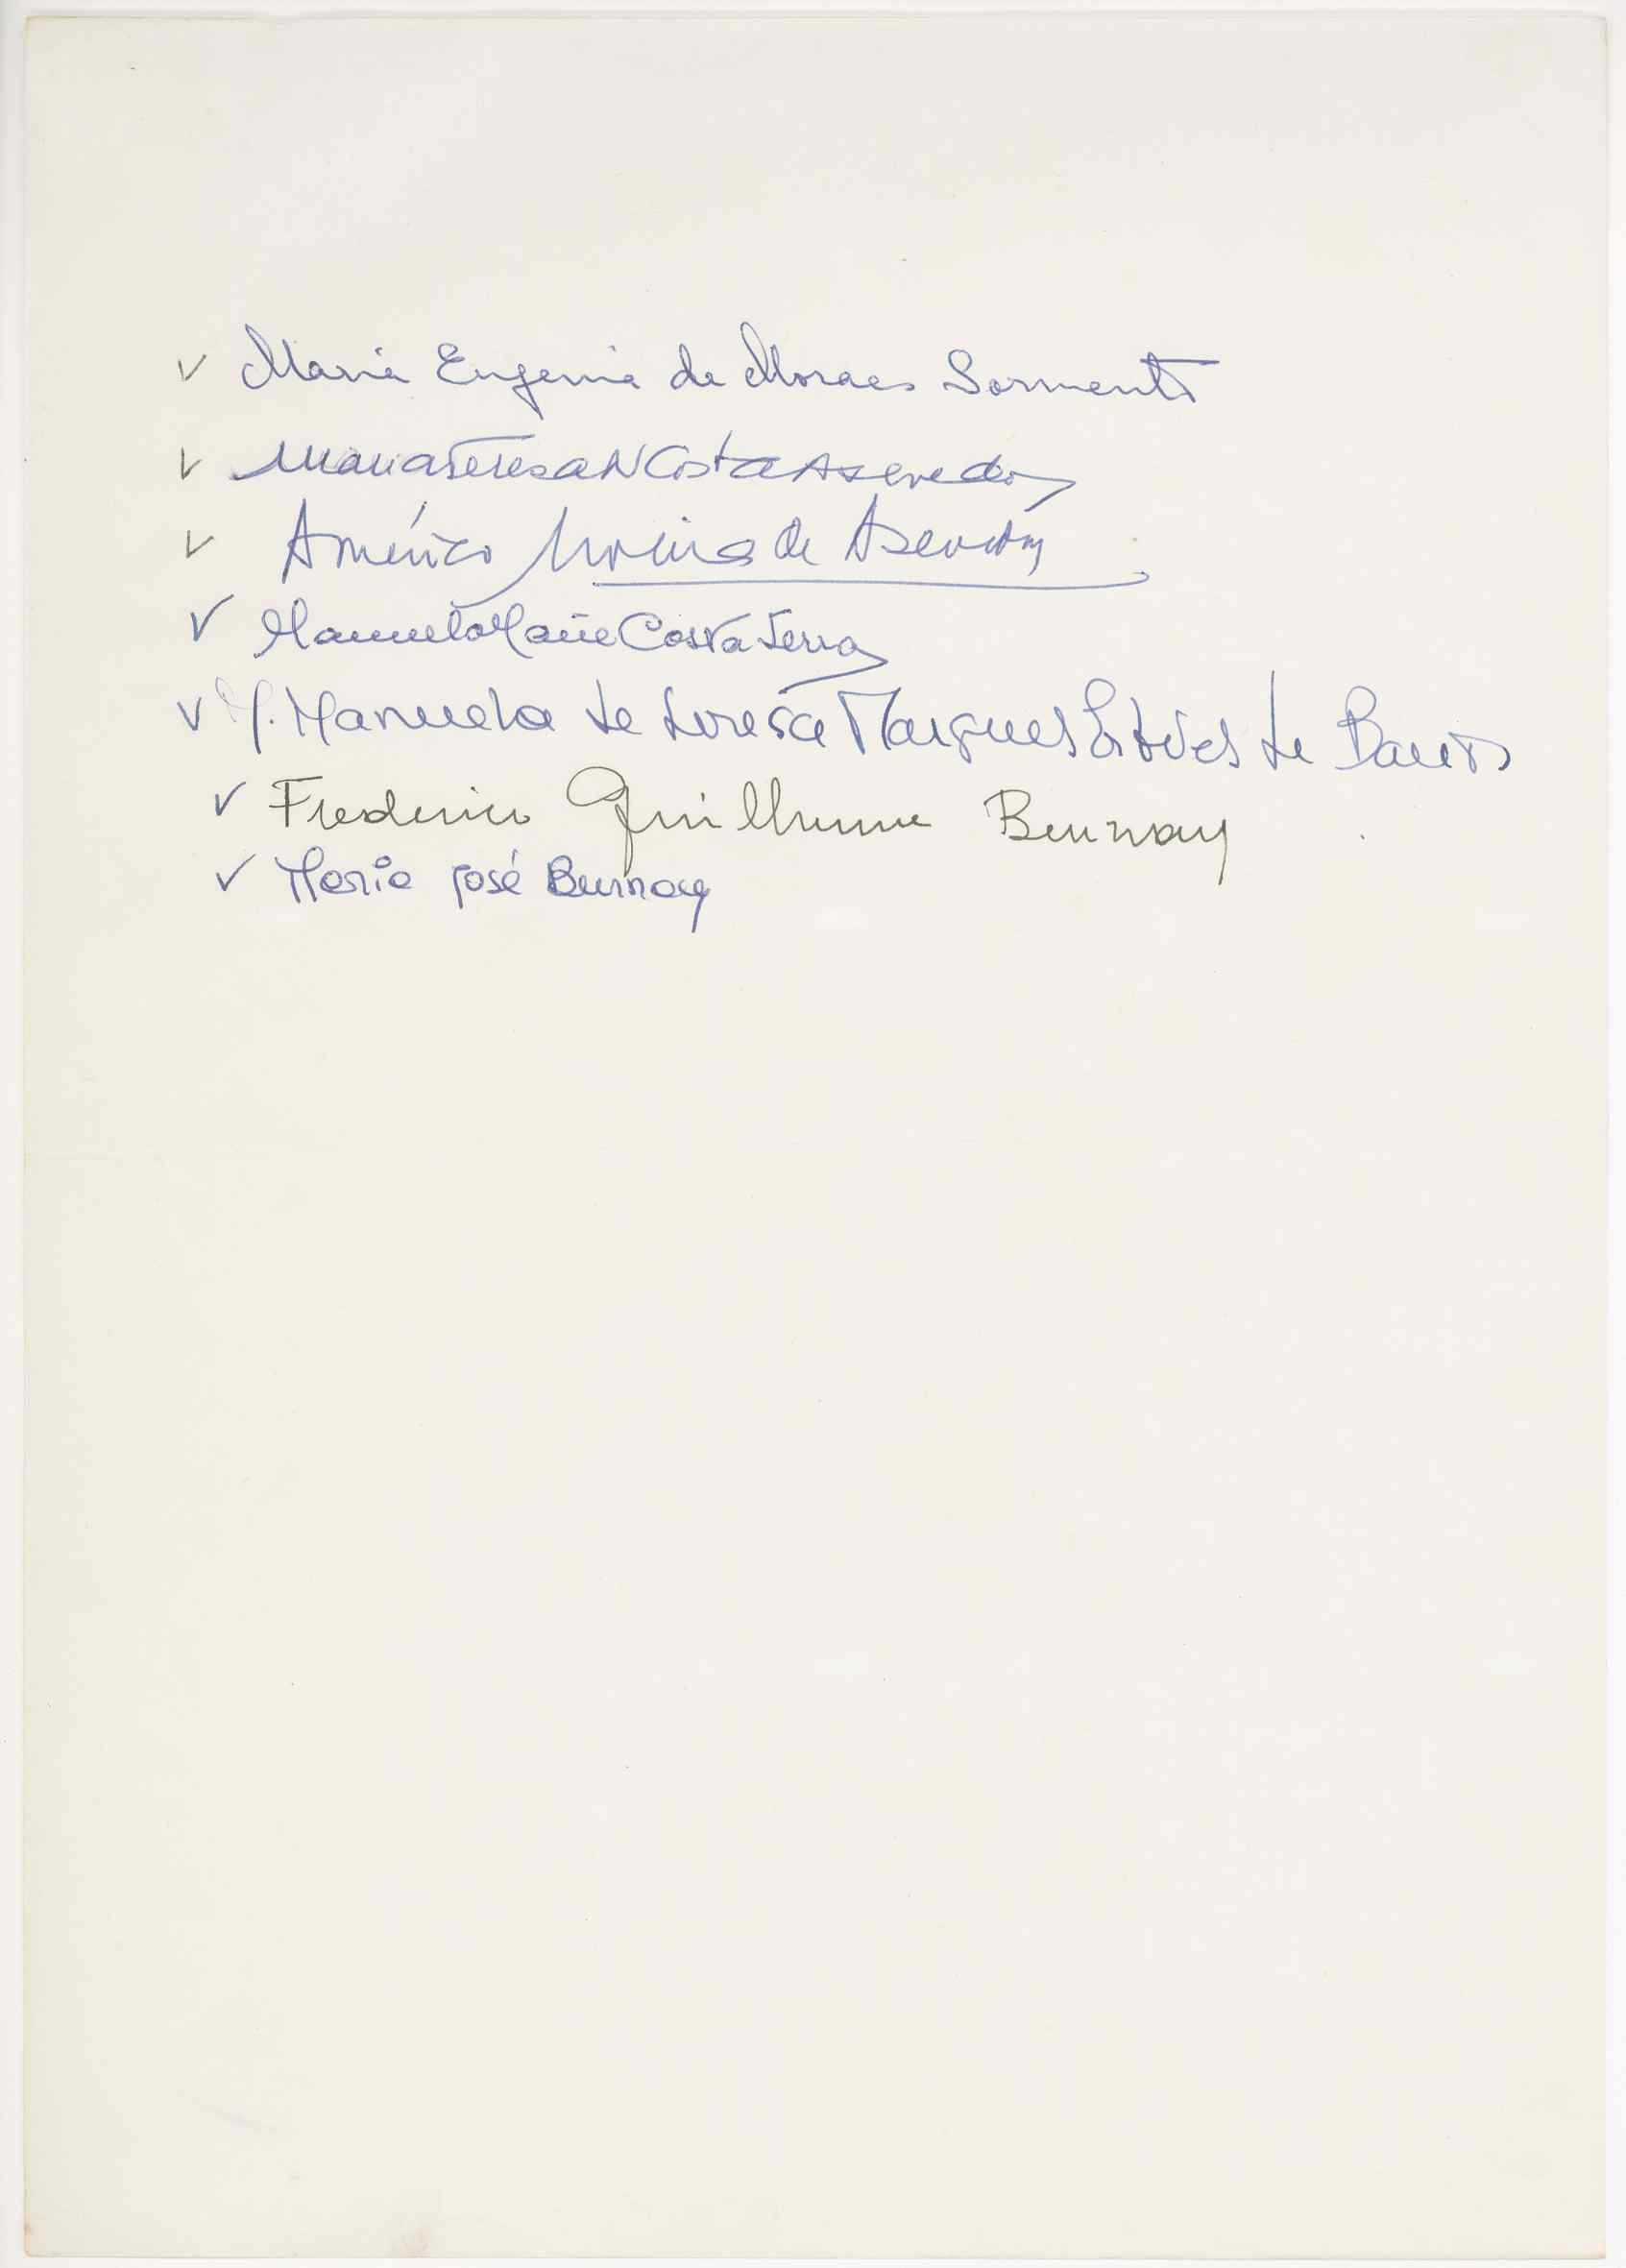 ✓ Maria Eugenia de Moraes Sarmento
✓ Maria Teresa N Costa Azevedo
✓ Américo de Azevedo
✓ Manuela Marie Costa Serra
✓ M. Manuela de Marques Esteves de Barros
✓ Frederico Guilherme Burnay
✓ Maria José Burnay